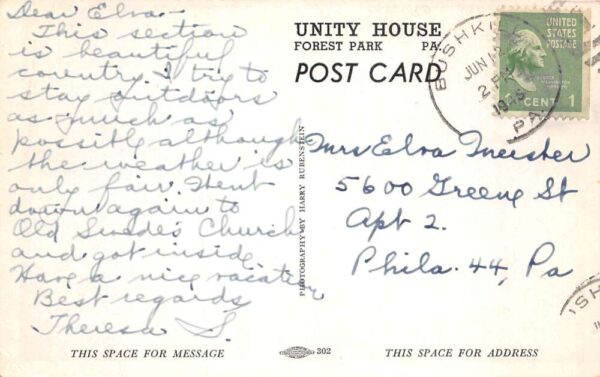 Dear Elva -
This section
is beautiful
country. I try to
stay outdoors
as much as
possible although
the weather is
only fair. Went
down again to
Old Swede's Church
and got inside.
Have a nice vacation
Best regards
Theresa S.
THIS SPACE FOR MESSAGE
UNITY HOUSE
FOREST PARK PA.
POST CARD
PHOTOGRAPHY BY HARRY RUBENSTEIN
302
BUSHKILL
JUN
2 PM
PA.
UNITED
STATES
POSTAGE
CENT 1
Mrs Elva Meister
5600 Greene St
Apt 2.
Phila. 44, Pa
ISH
THIS SPACE FOR ADDRESS